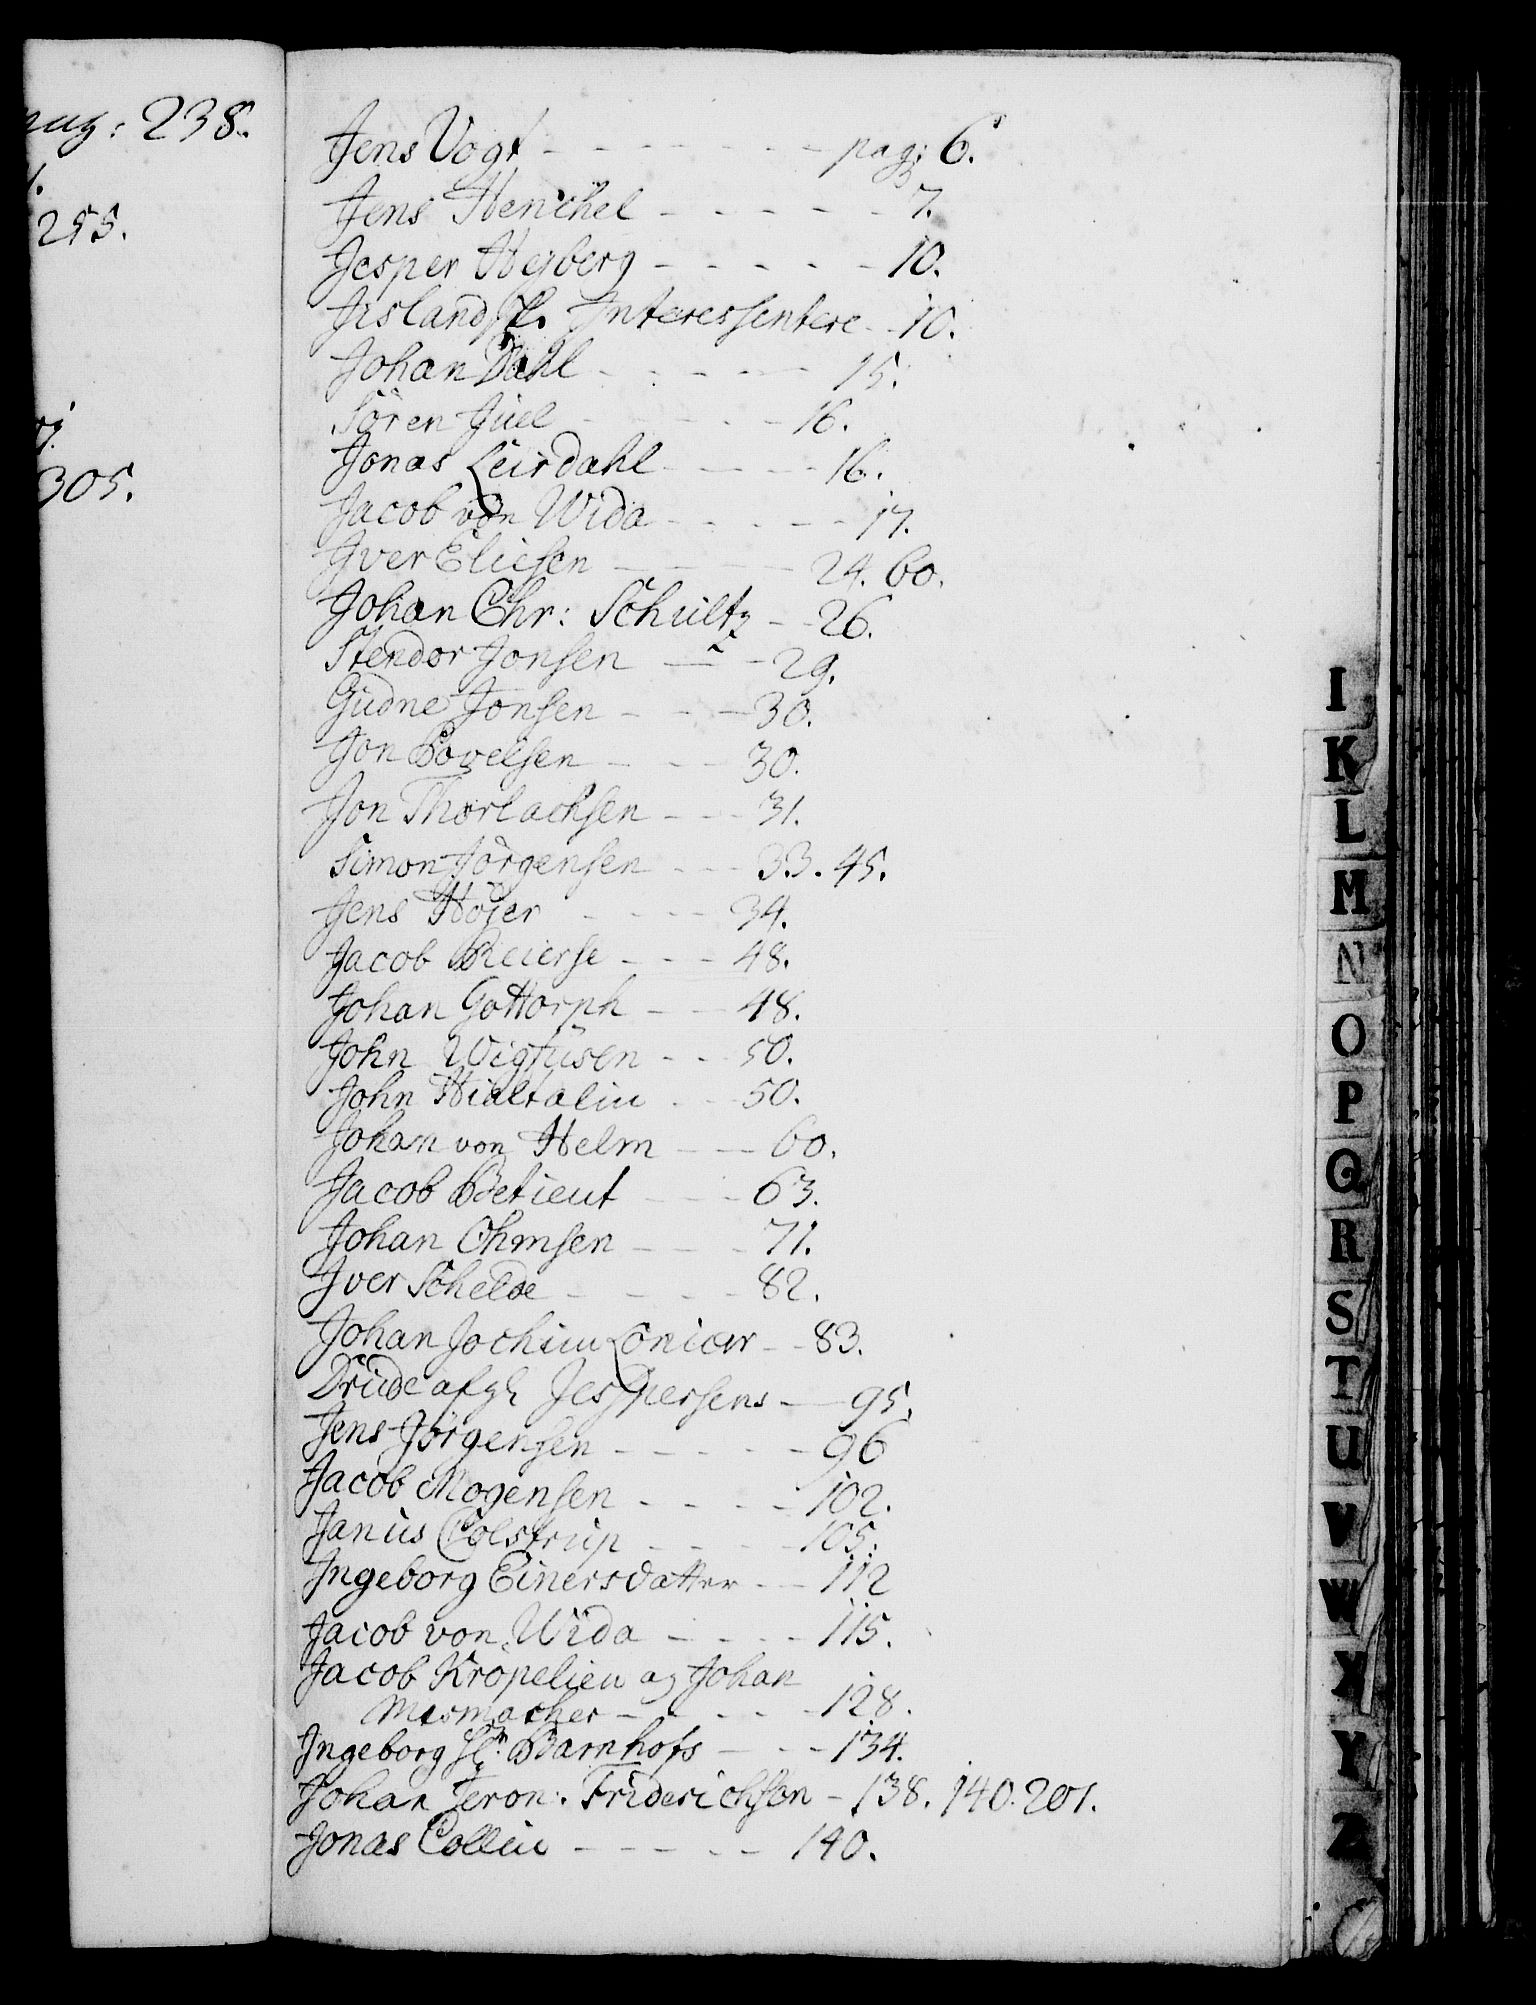 238.
255.
305.
Jens Vogt - - - - - - - - pag: 6.
Jens Henchel - - - - - - 7.
Jesper Hejberg - - - - - 10.
Jisland Interessentere - 10.
Johan Dahl - - - - - 15.
Sören Juel - - - - - 16.
Jonas Leirdahl - - - - 16.
Jacob von Wida - - - - - 17.
Jver Eliesen - - - - 24. 60.
Johan Chr: Schultz - - 26.
Stendor Jonsen - - 29.
Gudne Jonsen - - - 30.
Jon Povelsen - - - 30.
Jon Thorlachsen - - - 31.
Simon Jörgensen - - - 33. 45.
Jens Höier - - - - 34.
Jacob Beierse - - - 48.
Johan Gottorph - - - 48.
John Wigfusen - - - 50.
John Hialtalin - - - 50.
Johan von Helm - - - 60.
Jacob Betient - - - 63.
Johan Ohmsen - - - 71.
Jver Schelde - - - - - 82.
Johan Jochim Lonicer - - 83.
Drude afgl Jespersens - - 95.
Jens Jörgensen - - - - - 96
Jacob Mogensen - - - - 102.
Janus Colstrup - - - - 105.
Ingeborg Einersdatter - - 112
Jacob von Wida - - - - 115.
Jacob Kröpelien og Johan
Mesmacher - - - - - 128.
Ingeborg Sl: Barnhofs - - - 134.
Johan Jeron: Friderichsen - 138. 140. 201.
Jonas Collin - - - - - 140.
I
K
L
M
N
O
P
Q
R
S
T
U
V
W
X
Y
Z